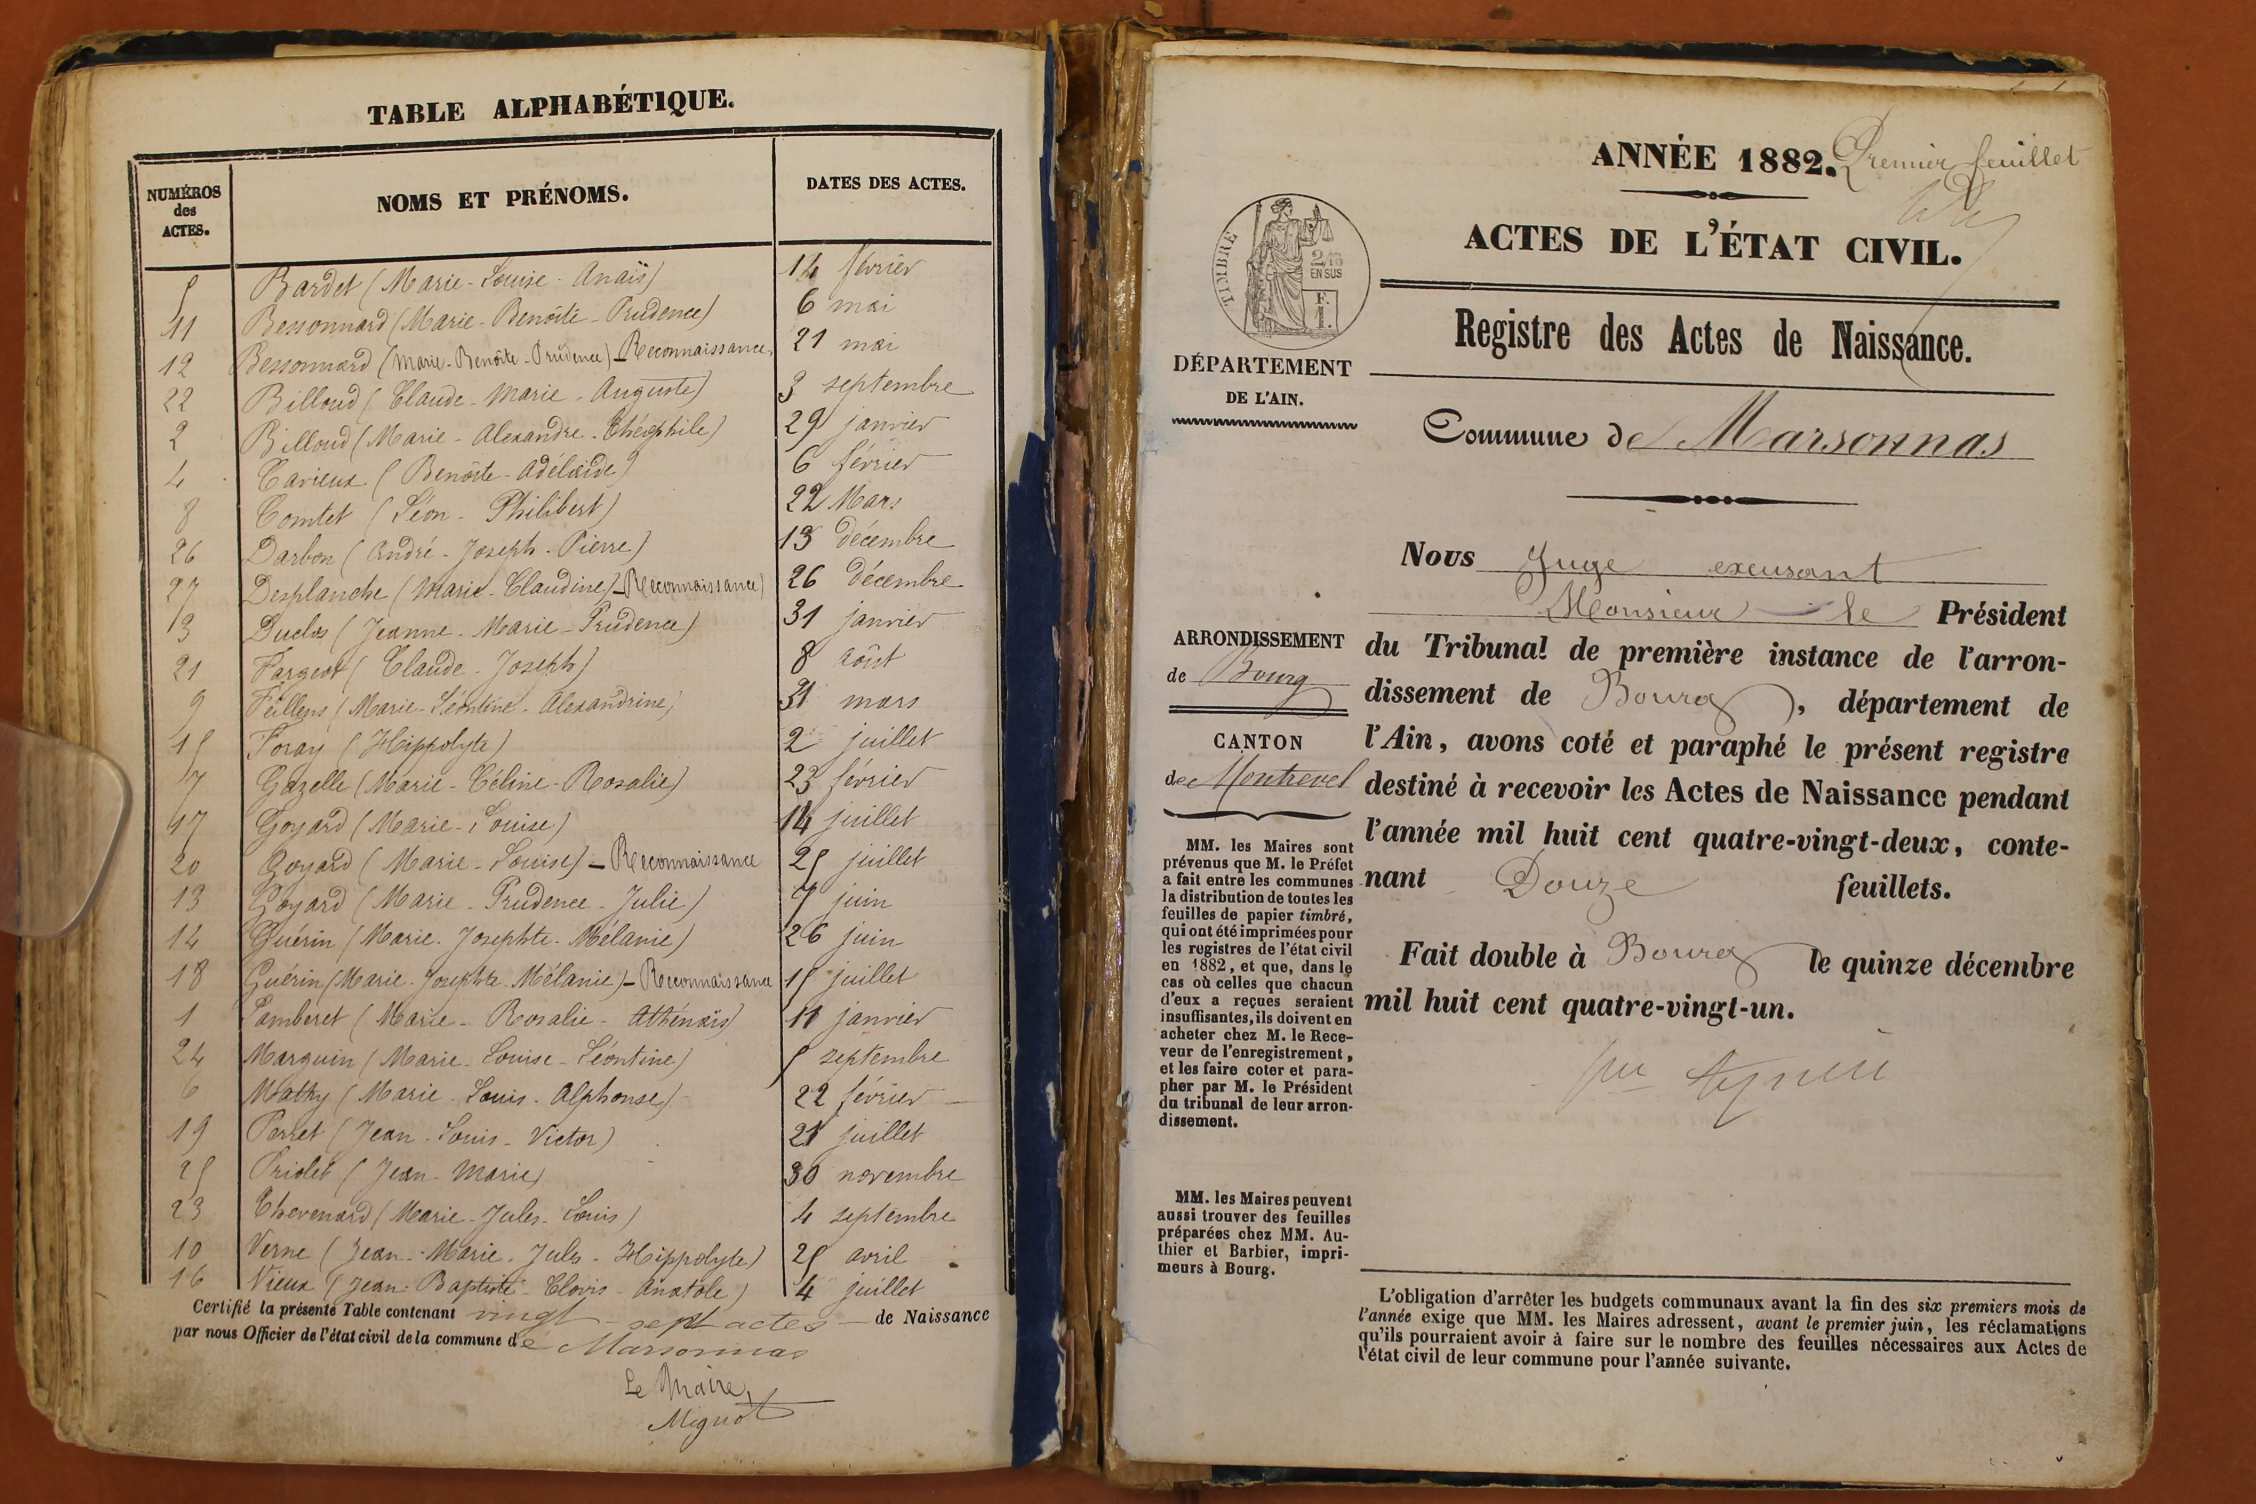 TABLE ALPHABÉTIQUE.
NUMÉROS des ACTES. NOMS ET PRÉNOMS. DATES DES ACTES.
5 Bardet (Marie-Louise-Anaïs) 14 février
11 Bessonnard (Marie-Benoîte-Prudence) 6 mai
12 Bessonnard (Marie-Benoîte-Prudence)-Reconnaissance, 21 mai
22 Billoud (Claude-Marie-Auguste) 3 septembre
2 Billoud (Marie-Alexandre-Théophile) 29 janvier
4 Cavieux (Benoîte-Adélaïde) 6 février
8 Comtet (Léon-Philibert) 22 Mars
26 Darbon (André-Joseph-Pierre) 13 décembre
27 Desplanche (Marie-Claudine)-Reconnaissance) 26 décembre
3 Duclos (Jeanne-Marie-Prudence) 31 janvier
21 Fargeot (Claude-Joseph) 8 août
9 Feillens (Marie-Léontine-Alexandrine) 31 mars
15 Foray (Hippolyte) 2 juillet
7 Gazelle (Marie-Céline-Rosalie) 23 février
17 Goyard (Marie-Louise) 14 juillet
20 Goyard (Marie-Louise)-Reconnaissance 25 juillet
13 Goyard (Marie-Prudence-Julie) 7 juin
14 Guérin (Marie-Josephte-Mélanie) 26 juin
18 Guérin (Marie-Josephte-Mélanie)-Reconnaissance 15 juillet
1 Lamberet (Marie-Rosalie-Athénaïs) 11 janvier
24 Marguin (Marie-Louise-Léontine) 5 septembre
6 Mathy (Marie-Louis-Alphonse) 22 février
19 Perret (Jean-Louis-Victor) 21 juillet
25 Priolet (Jean-Marie) 30 novembre
23 Thevenard (Marie-Jules-Louis) 4 septembre
10 Verne (Jean-Marie-Jules-Hippolyte) 25 avril
16 Vieux (Jean-Baptiste-Clovis-Anatole) 4 juillet
Certifié la présente Table contenant vingt-sept actes de Naissance
par nous Officier de l'état civil de la commune de Marsonnas
Le Maire,
Mignot
ANNÉE 1882. Premier feuillet
ACTES DE L'ÉTAT CIVIL.
TIMBRE
2/10
EN SUS
F.
1.
Registre des Actes de Naissance.
DÉPARTEMENT
DE L'AIN.
Commune de Marsonnas
ARRONDISSEMENT
de Bourg
CANTON
de Montrevel
MM. les Maires sont
prévenus que M. le Préfet
a fait entre les communes
la distribution de toutes les
feuilles de papier timbré,
qui ont été imprimées pour
les registres de l'état civil
en 1882, et que, dans le
cas où celles que chacun
d'eux a reçues seraient
insuffisantes, ils doivent en
acheter chez M. le Rece-
veur de l'enregistrement,
et les faire coter et para-
pher par M. le Président
du tribunal de leur arron-
dissement.
MM. les Maires peuvent
aussi trouver des feuilles
préparées chez MM. Au-
thier et Barbier, impri-
meurs à Bourg.
Nous Juge excusant
Monsieur le Président
du Tribunal de première instance de l'arron-
dissement de Bourg, département de
l'Ain, avons coté et paraphé le présent registre
destiné à recevoir les Actes de Naissance pendant
l'année mil huit cent quatre-vingt-deux, conte-
nant Douze feuillets.
Fait double à Bourg le quinze décembre
mil huit cent quatre-vingt-un.
L'obligation d'arrêter les budgets communaux avant la fin des six premiers mois de
l'année exige que MM. les Maires adressent, avant le premier juin, les réclamations
qu'ils pourraient avoir à faire sur le nombre des feuilles nécessaires aux Actes de
l'état civil de leur commune pour l'année suivante.